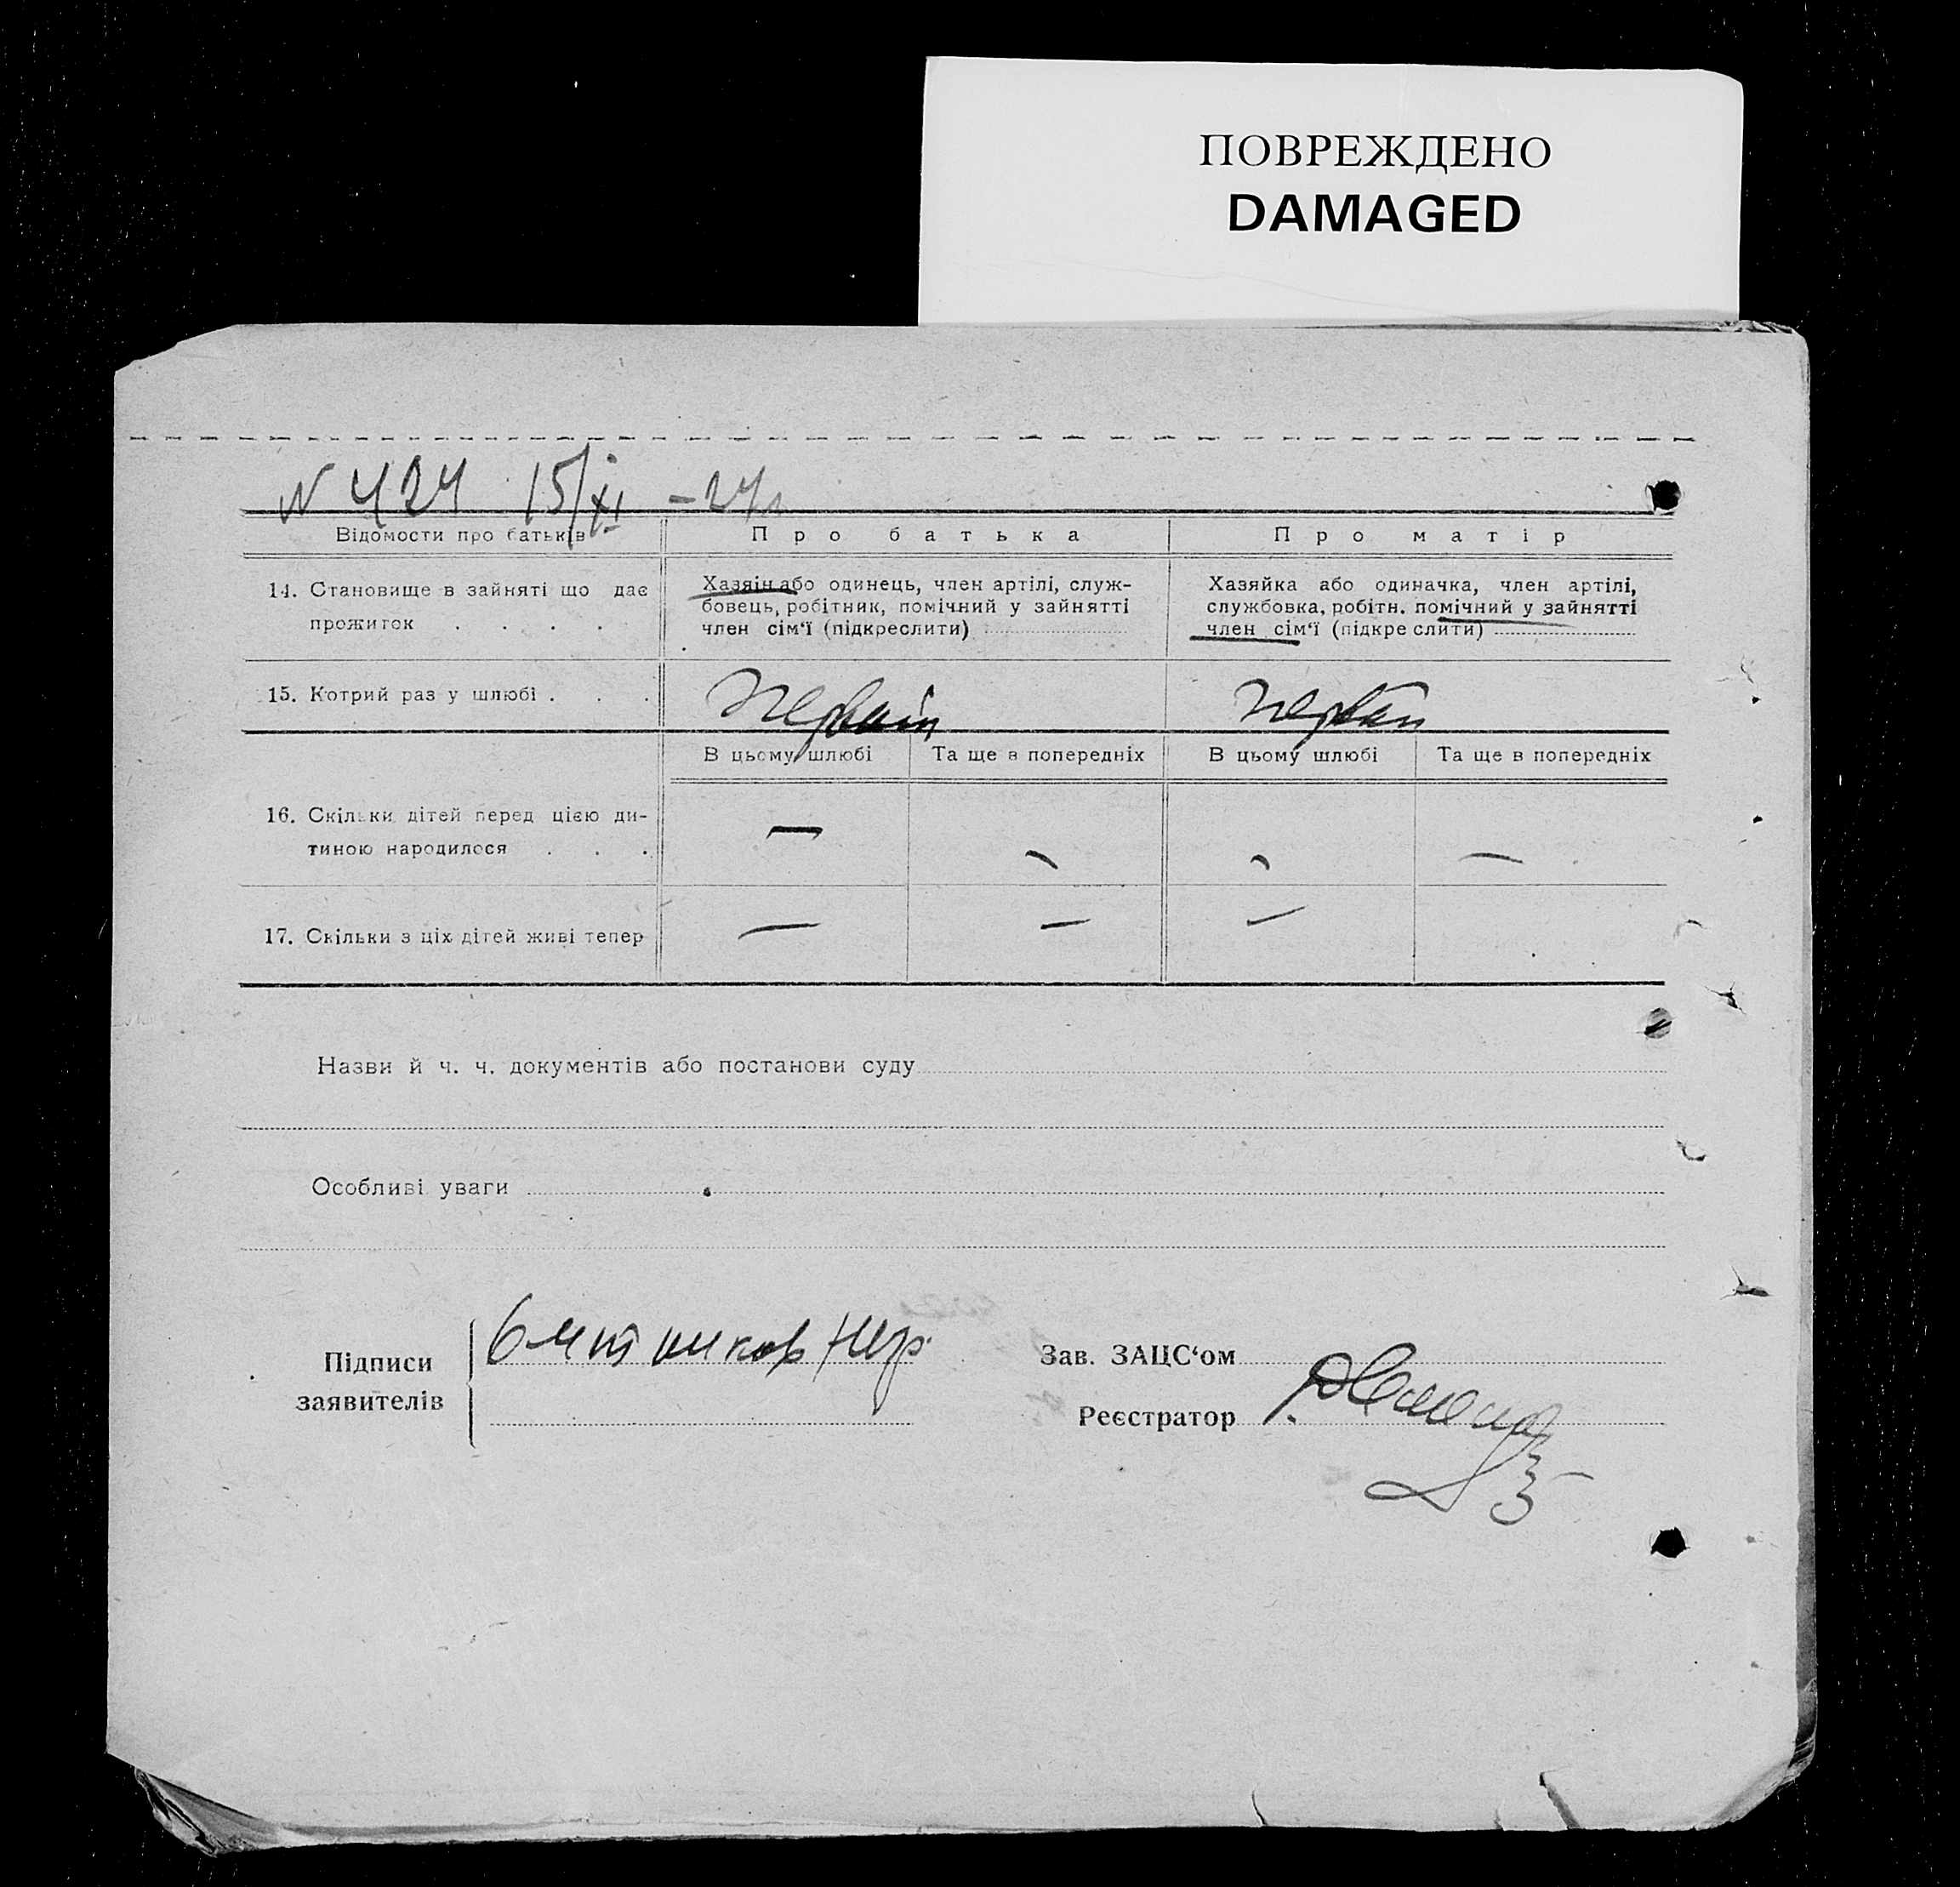 ПОВРЕЖДЕНО
DAMAGED
N 424 15/XI - 24
Відомости про батьків
Про батька
Про матір
14. Становище в зайняті що дає
прожиток . . . .
Хазяін або одинець, член артілі, служ-
бовець, робітник, помічний у зайнятті
член сім‘ї (підкреслити)
Хазяйка або одиначка, член артілі,
службовка, робітн. помічний у зайнятті
член сім‘ї (підкреслити)
15. Котрий раз у шлюбі . . .
В цьому шлюбі
Та ще в попередніх
В цьому шлюбі
Та ще в попередніх
16. Скільки дітей перед цією ди-
тиною народилося . . .
—
—
—
—
17. Скільки з ціх дітей живі тепер
—
—
—
Назви й ч. ч. документів або постанови суду
Особливі уваги
Підписи
заявителів
Зав. ЗАЦС‘ом
Реєстратор